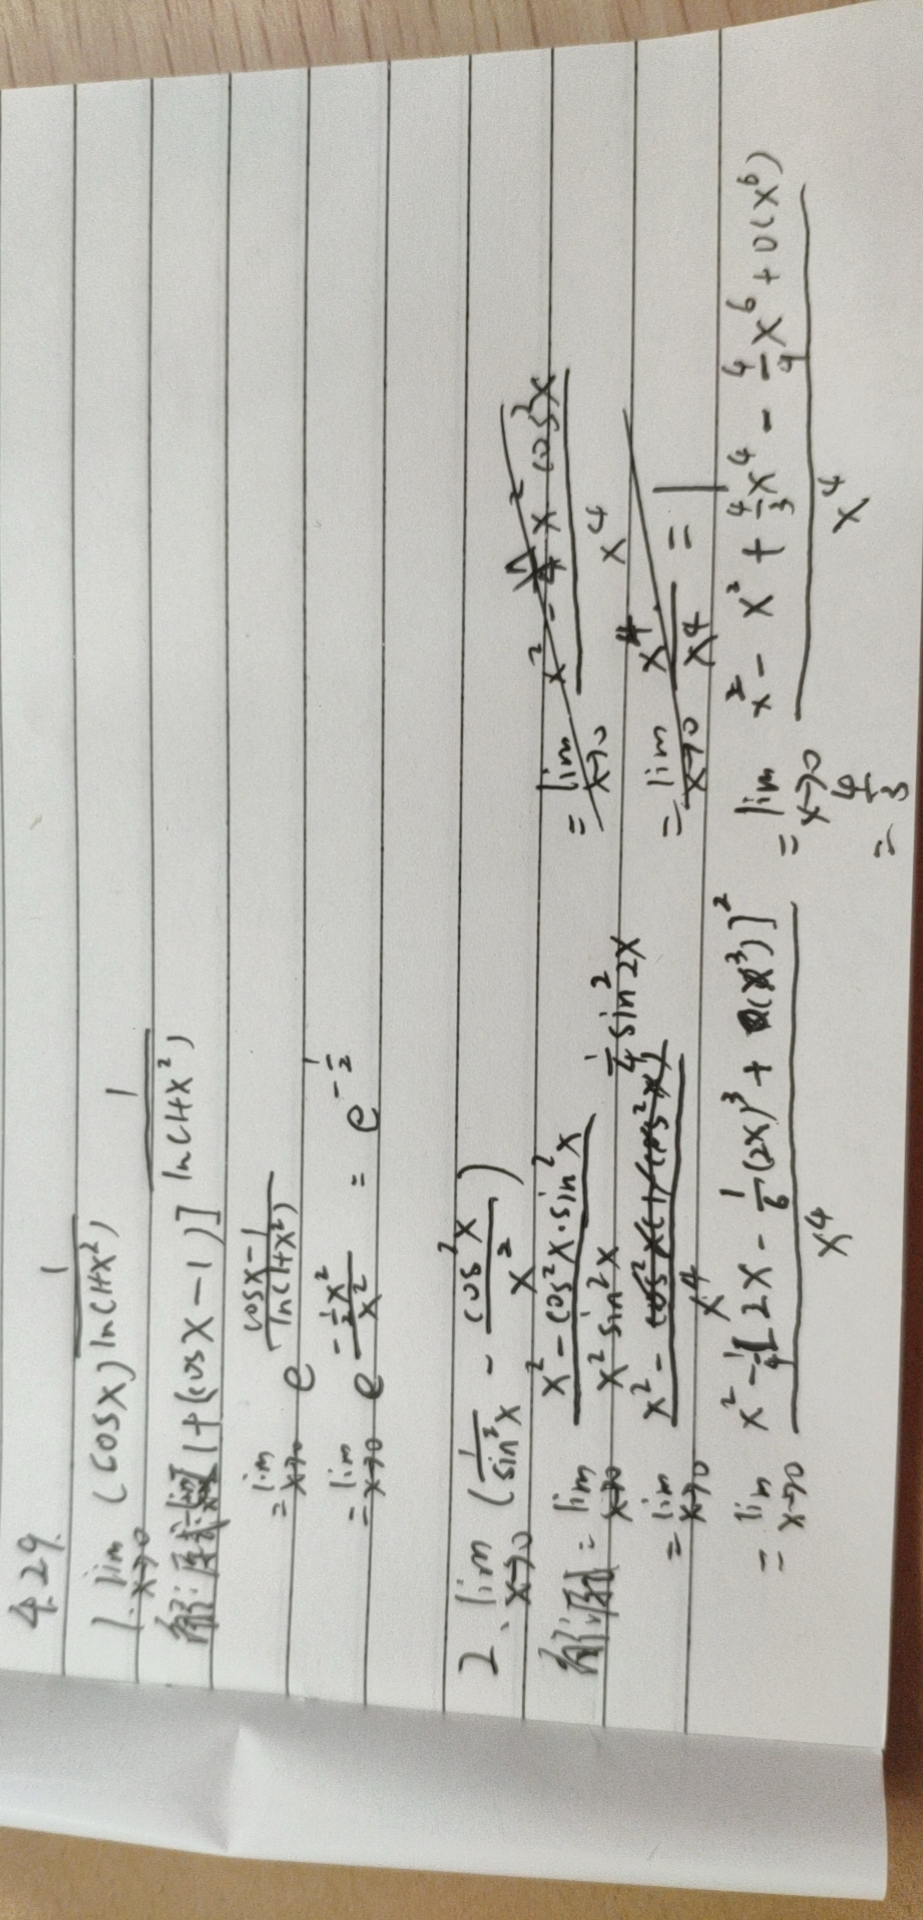 4.29.
1. lim x→0 (cosx)^(1/ln(1+x²))
解:原式= [1+(cosx-1)]^(1/ln(1+x²))
= lim x→0 e^((cosx-1)/ln(1+x²))
= lim x→0 e^((-½x²)/x²) = e^(-½)
2. lim x→0 (1/sin²x - cos²x/x²)
解:原式= lim x→0 (x²-cos²x·sin²x)/(x²sin²x)
= lim x→0 (x² - ¼sin²2x)/x⁴
= lim x→0 (x²-¼[2x-⅙(2x)³+o(x³)]²)/x⁴
= lim x→0 (x²-x²+4/3x⁴-4/9x⁶+o(x⁶))/x⁴
= 4/3